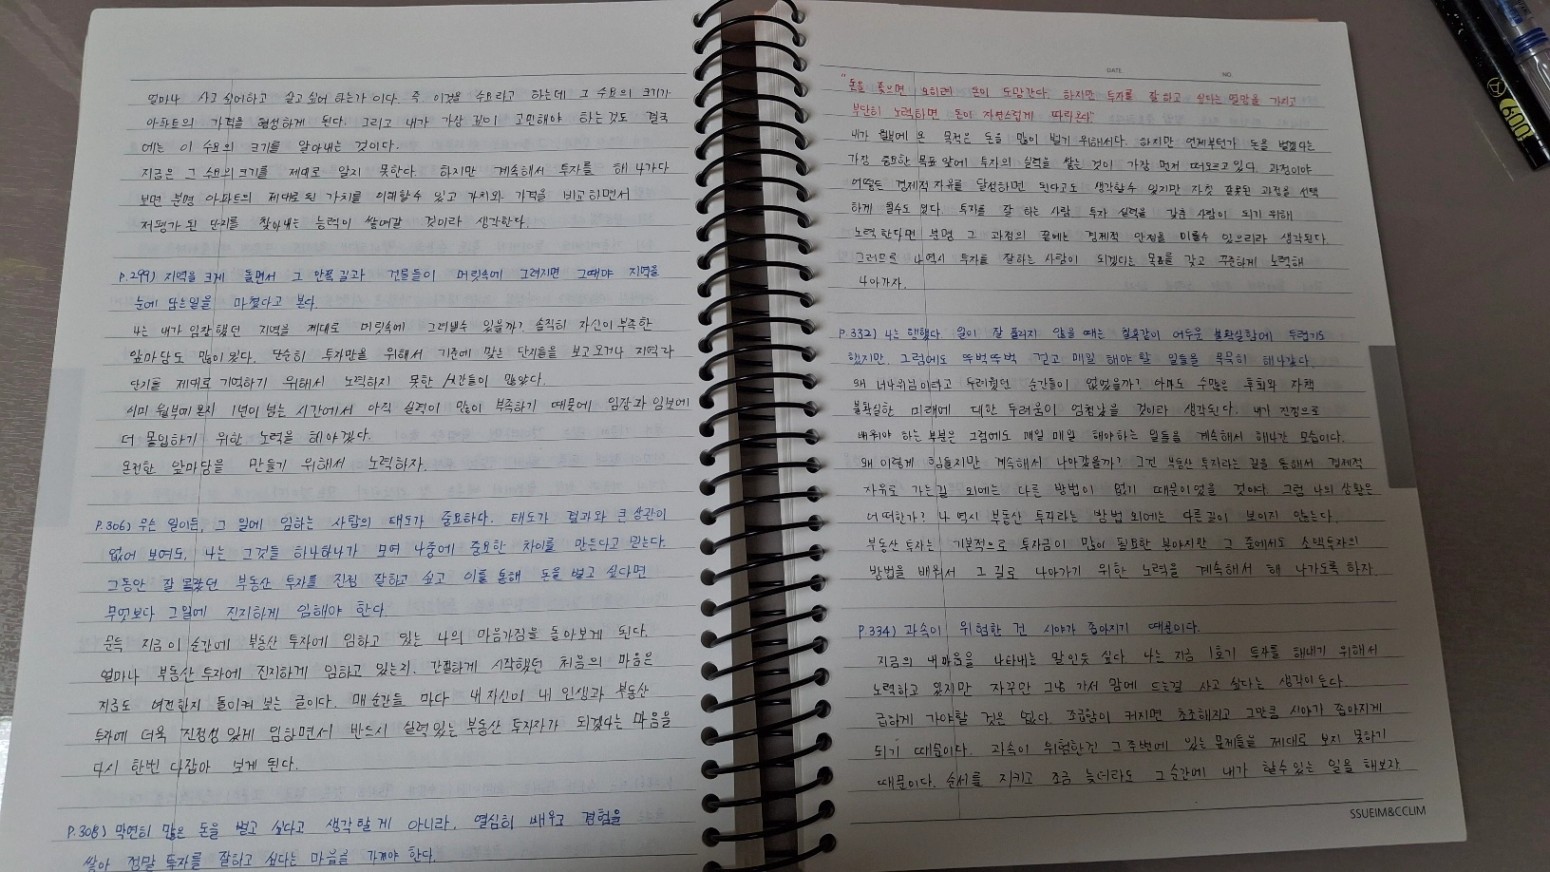 얼마나 사고 싶어하고 살고 싶어 하는가 이다. 즉 이것을 수요라고 하는데 그 수요의 크기가
아파트의 가격을 형성하게 된다. 그리고 내가 가장 깊이 고민해야 하는것도 결국
에는 이 수요의 크기를 알아내는 것이다.
지금은 그 수요의 크기를 제대로 알지 못한다. 하지만 계속해서 투자를 해 나가다
보면 분명 아파트의 제대로 된 가치를 이해할수 있고 가치와 가격을 비교하면서
저평가 된 단지를 찾아내는 능력이 쌓여갈 것이라 생각한다.
P.299) 지역을 크게 돌면서 그 안쪽 길과 건물들이 머릿속에 그려지면 그때야 지역을
눈에 담는일을 마쳤다고 본다.
나는 내가 임장했던 지역을 제대로 머릿속에 그려볼수 있을까? 솔직히 자신이 부족한
앞마당도 많이 있다. 단순히 투자만을 위해서 기준에 맞는 단지들을 보고 오거나 지역과
단지를 제대로 기억하기 위해서 노력하지 못한 시간들이 많았다.
이미 월부에 온지 1년이 넘는 시간에서 아직 실력이 많이 부족하기 때문에 임장과 임보에
더 몰입하기 위한 노력을 해야겠다.
온전한 앞마당을 만들기 위해서 노력하자.
P.306) 무슨 일이든, 그 일에 임하는 사람의 태도가 중요하다. 태도가 결과와 큰 상관이
없어 보여도, 나는 그것들 하나하나가 모여 나중에 중요한 차이를 만든다고 믿는다.
그동안 잘 몰랐던 부동산 투자를 진정 잘하고 싶고 이를 통해 돈을 벌고 싶다면
무엇보다 그일에 진지하게 임해야 한다.
문득 지금 이 순간에 부동산 투자에 임하고 있는 나의 마음가짐을 돌아보게 된다.
얼마나 부동산 투자에 진지하게 임하고 있는지. 간절하게 시작했던 처음의 마음은
지금도 여전한지 돌이켜 보는 글이다. 매 순간들 마다 내 자신이 내 인생과 부동산
투자에 더욱 진정성 있게 임하면서 반드시 실력있는 부동산 투자자가 되겠다는 마음을
다시 한번 다잡아 보게 된다.
P.308) 막연히 많은 돈을 벌고 싶다고 생각할게 아니라, 열심히 배우고 경험을
쌓아 정말 투자를 잘하고 싶다는 마음을 가져야 한다.
DATE NO
"돈을 쫓으면 오히려 돈이 도망간다. 하지만 투자를 잘 하고 싶다는 열망을 가지고
부단히 노력하면 돈이 자연스럽게 따라온다"
내가 월부에 온 목적은 돈을 많이 벌기 위해서다. 하지만 언제부턴가 돈을 벌겠다는
가장 중요한 목표 앞에 투자의 실력을 쌓는 것이 가장 먼저 떠오르고 있다. 과정이야
어떻든 경제적 자유를 달성하면 된다고도 생각할수 있지만 자칫 잘못된 과정을 선택
하게 될수도 있다. 투자를 잘 하는 사람 투자 실력을 갖춘 사람이 되기 위해
노력한다면 분명 그 과정의 끝에는 경제적 안정을 이룰수 있으리라 생각된다.
그러므로 나 역시 투자를 잘하는 사람이 되겠다는 목표를 갖고 꾸준하게 노력해
나아가자.
P.332) 나는 행했다 일이 잘 풀리지 않을 때는 칠흑같이 어두운 불확실함에 두렵기도
했지만. 그럼에도 뚜벅뚜벅 걷고 매일 해야 할 일들을 묵묵히 해나갔다.
왜 너나위님이라고 두려웠던 순간들이 없었을까? 아마도 수많은 후회와 자책
불확실한 미래에 대한 두려움이 엄청났을 것이라 생각된다. 내가 진정으로
배워야 하는 부분은 그럼에도 매일 매일 해야하는 일들을 계속해서 해나간 모습이다.
왜 이렇게 힘들지만 계속해서 나아갔을까? 그건 부동산 투자라는 길을 통해서 경제적
자유로 가는 길 외에는 다른 방법이 없기 때문이었을 것이다. 그럼 나의 상황은
어떠한가? 나 역시 부동산 투자라는 방법 외에는 다른 길이 보이지 않는다.
부동산 투자는 기본적으로 투자금이 많이 필요한 분야지만 그 중에서도 소액투자의
방법을 배워서 그 길로 나아가기 위한 노력을 계속해서 해 나가도록 하자.
P.334) 과속이 위험한 건 시야가 좁아지기 때문이다.
지금의 내 마음을 나타내는 말인듯 싶다. 나는 지금 1호기 투자를 해내기 위해서
노력하고 있지만 자꾸만 그냥 가서 맘에 드는걸 사고 싶다는 생각이 든다.
급하게 가야할 것은 없다. 조급함이 커지면 초조해지고 그만큼 시야가 좁아지게
되기 때문이다. 과속이 위험한건 그 주변에 있는 문제들을 제대로 보지 못하기
때문이다. 순서를 지키고 조금 늦더라도 그 순간에 내가 할수 있는 일을 해보자
SSUEIM&CCLIM